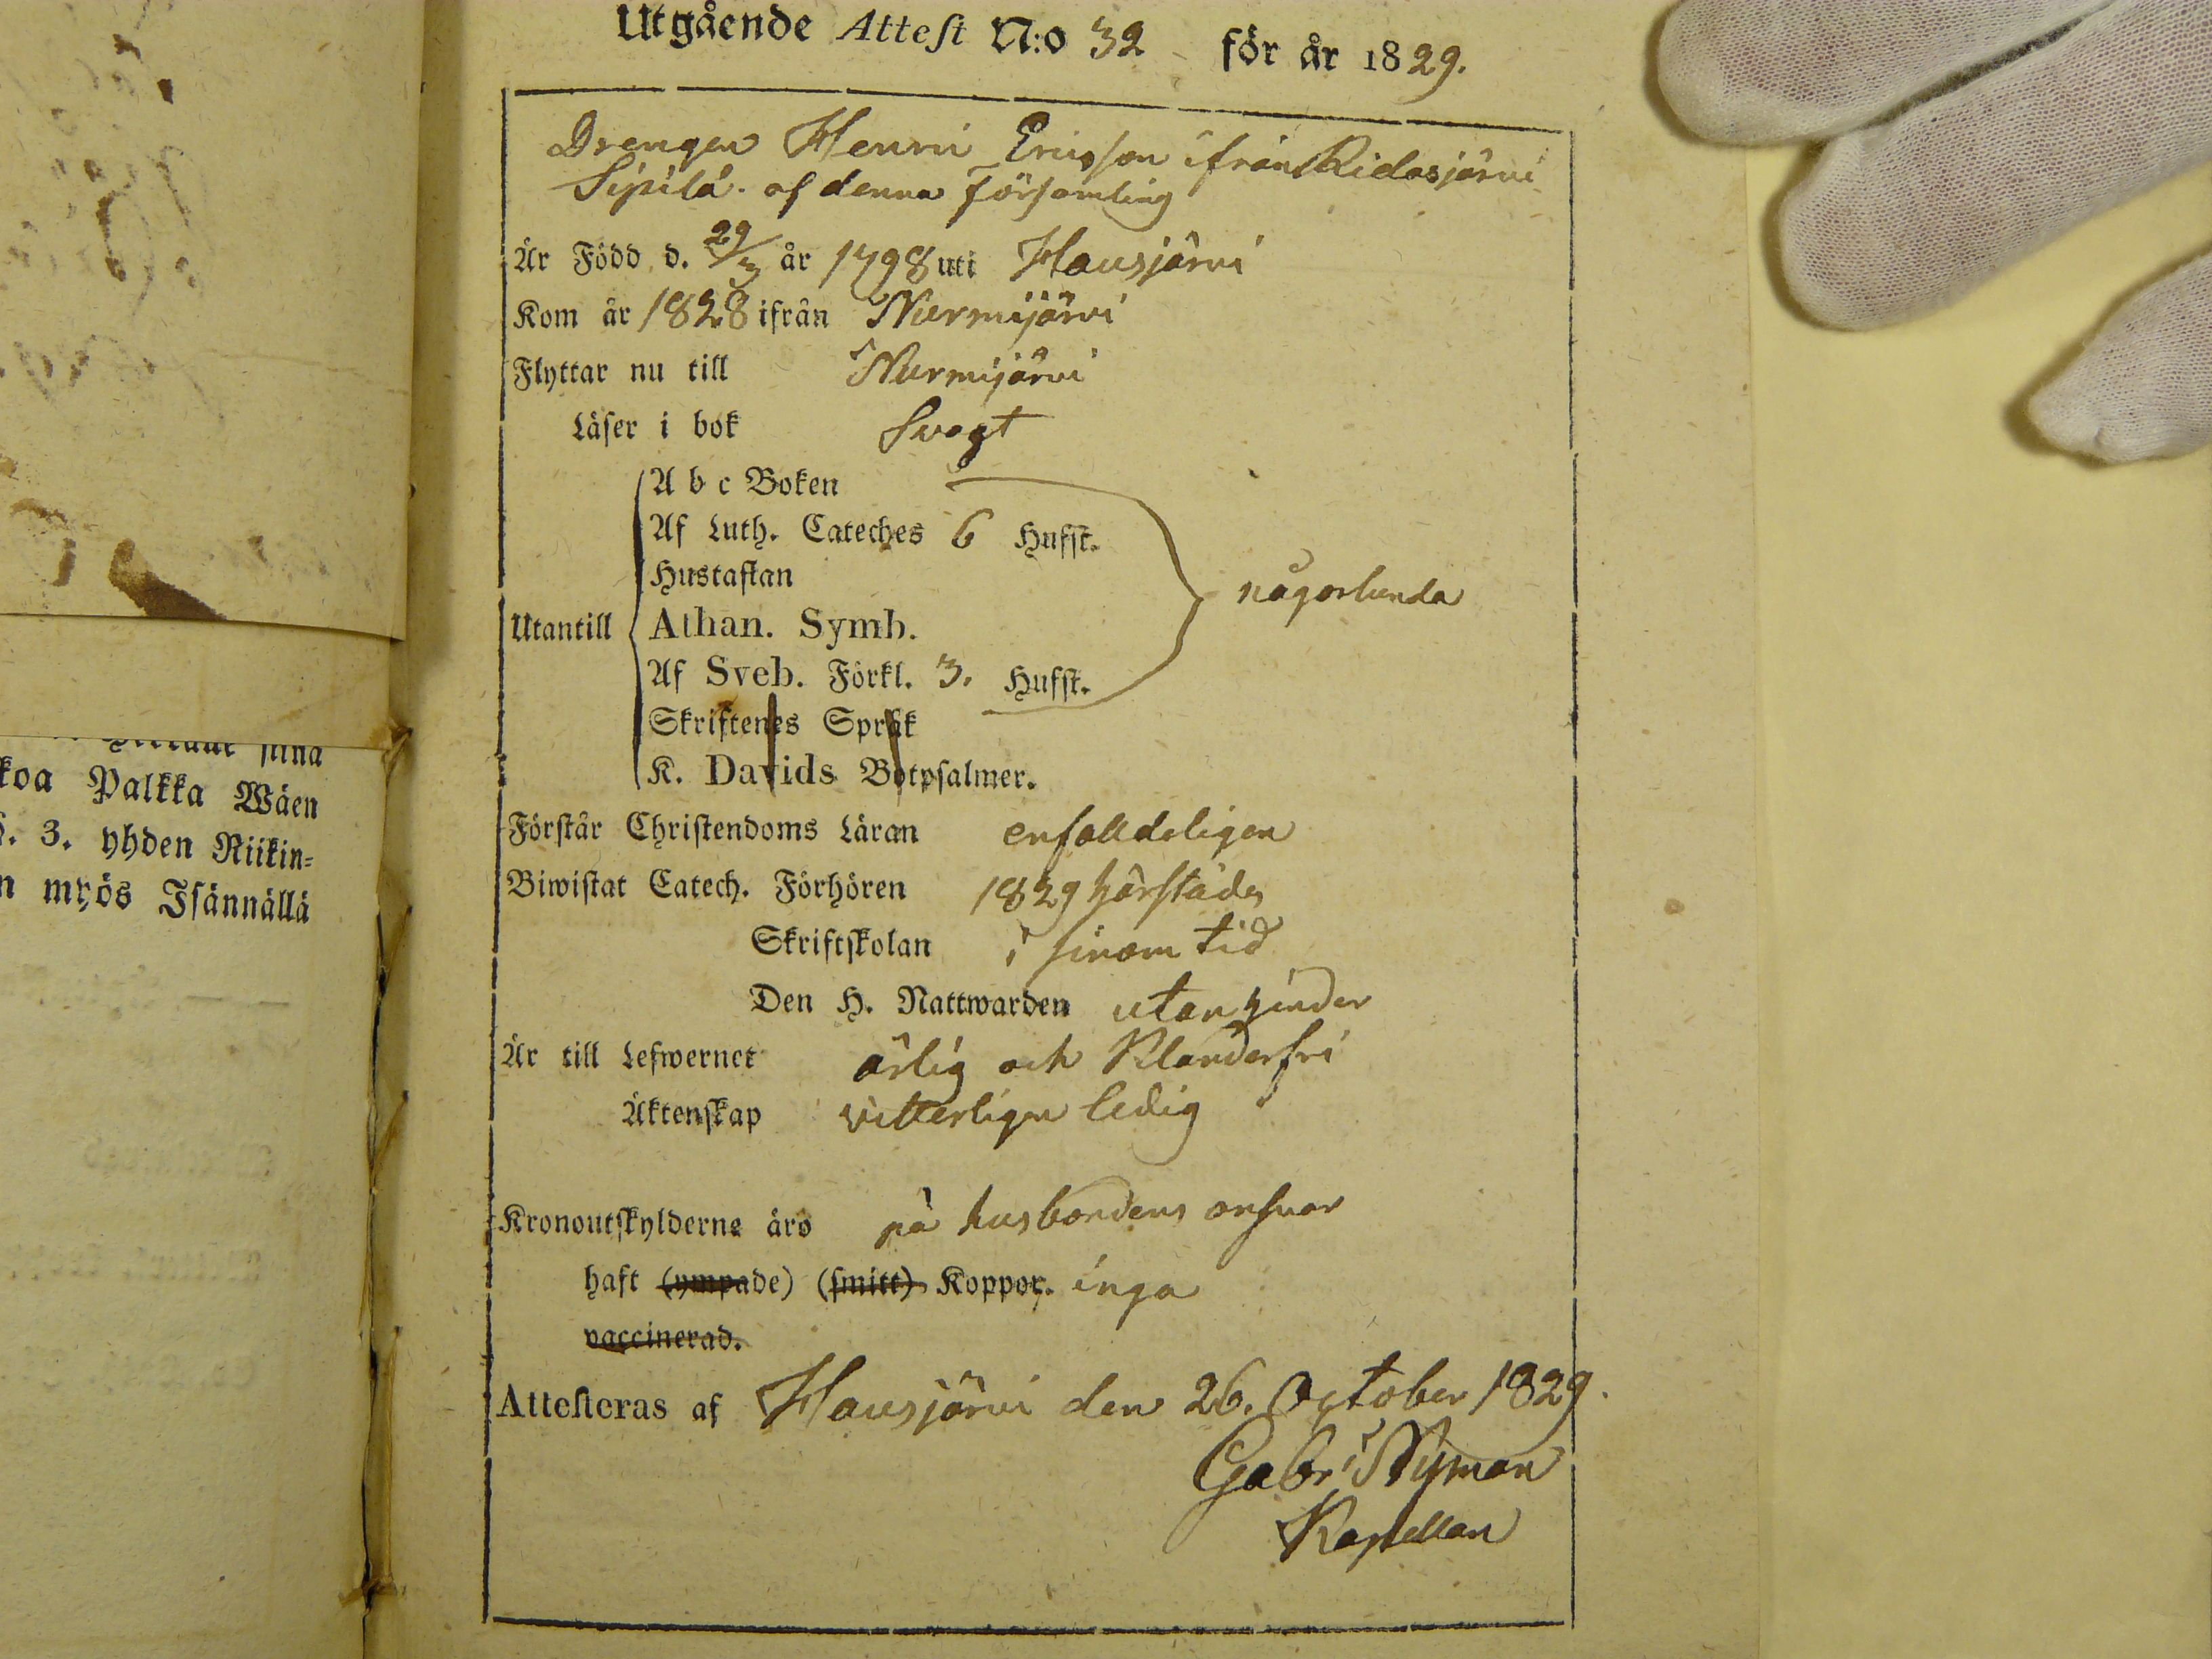 sina
koa Palkka Wäen
. 3. yhden Riikin=
n myös Isännällä
Utgående Attest N:o 32 för år 1829.
Drengen Henric Ericsson ifrån Ridasjärvi
Sipilä. af denna Församling
Är Född d. 29/3 år 1798 uti Hausjärvi
Kom år 1828 ifrån Nurmijärvi
Flyttar nu till Nurmijärvi
Läser i bok Svagt
A b c Boken
Af Luth. Cateches 6 Hufst.
Hustaflan
någorlunda
Utantill Athan. Symb.
Af Sveb. Förkl. 3. Hufst.
Skriftenes Språk
K. Davids Botpsalmer.
Förstår Christendoms Läran enfalldeligen
Biwistat Catech. Förhören 1829 härstädes
Skriftskolan i sinom tid
Den H. Nattwarden utan hinder
Är till Lefwernet ärlig och Klanderfri
Äktenskap vitterligen ledig
Kronoutskylderne äro på husbondens ansvar
haft (ympade) (smitt) Koppor. inga
vaccinerad.
Attesteras af Hausjärvi den 26. October 1829.
Gabr. Nyman
Kapellan